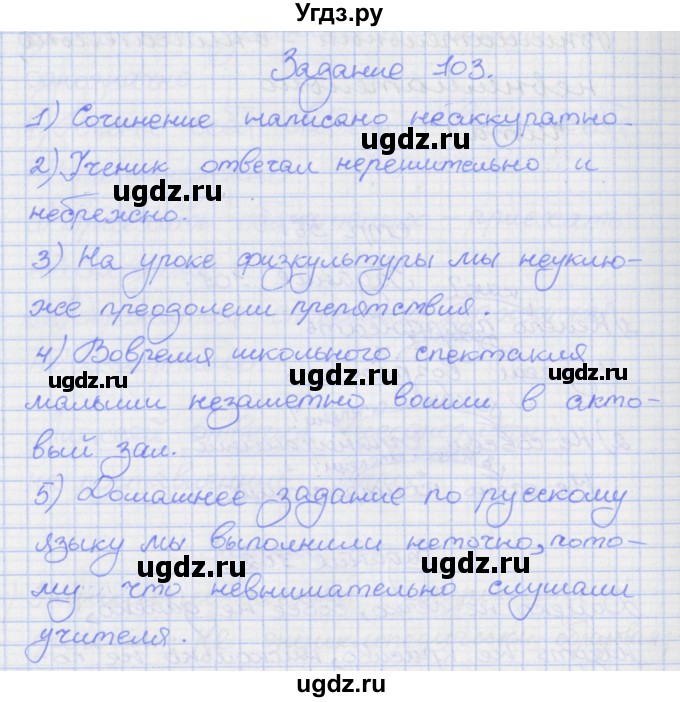 Угдз.ру
Задание 103.
1) Сочинение написано неаккуратно.
ugdz.ru
2) Ученик отвечал нерешительно и
ugdz.ru
небрежно.
ugdz.ru
3) На уроке физкультуры мы неуклю-
же преодолели препятствия.
4) Вовремя школьного спектакля
ugdz.ru ugdz.ru ugdz.ru
малыши незаметно вошли в акто-
вый зал.
5) Домашнее задание по русскому
языку мы выполнили неточно, пото-
ugdz.ru ugdz.ru
му что невнимательно слушали
учителя.
ugdz.ru